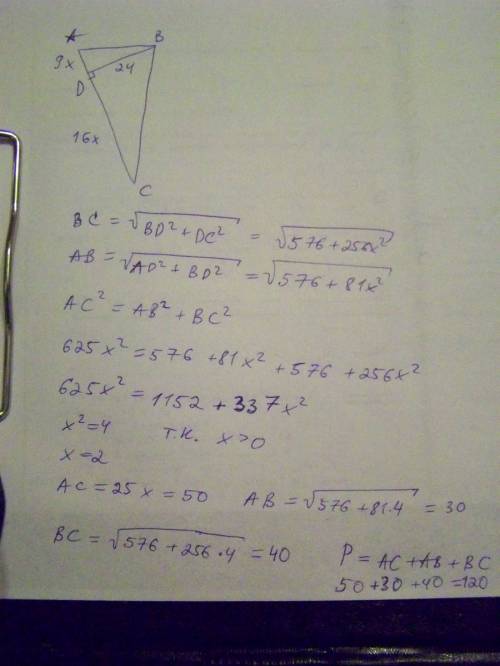 A B
9x 24
D
16x
C
BC = √BD² + DC² = √576 + 256x²
AB = √AD² + BD² = √576 + 81x²
AC² = AB² + BC²
625x² = 576 + 81x² + 576 + 256x²
625x² = 1152 + 337x²
x² = 4 т.к. x > 0
x = 2
AC = 25x = 50 AB = √576 + 81·4 = 30
BC = √576 + 256·4 = 40 P = AC + AB + BC
50 + 30 + 40 = 120